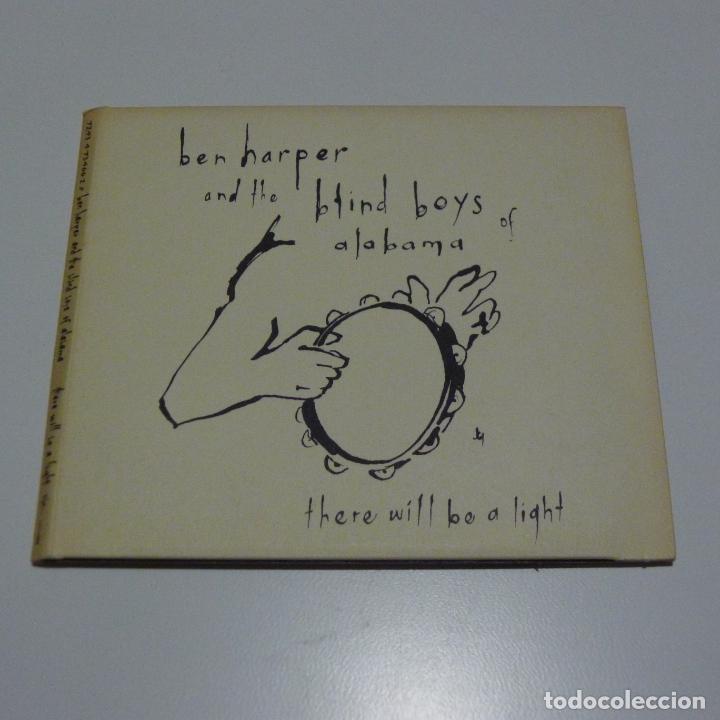 ben harper
and the blind boys of
alabama
there will be a light
ben harper and the blind boys of alabama there will be a light
todocoleccion.net